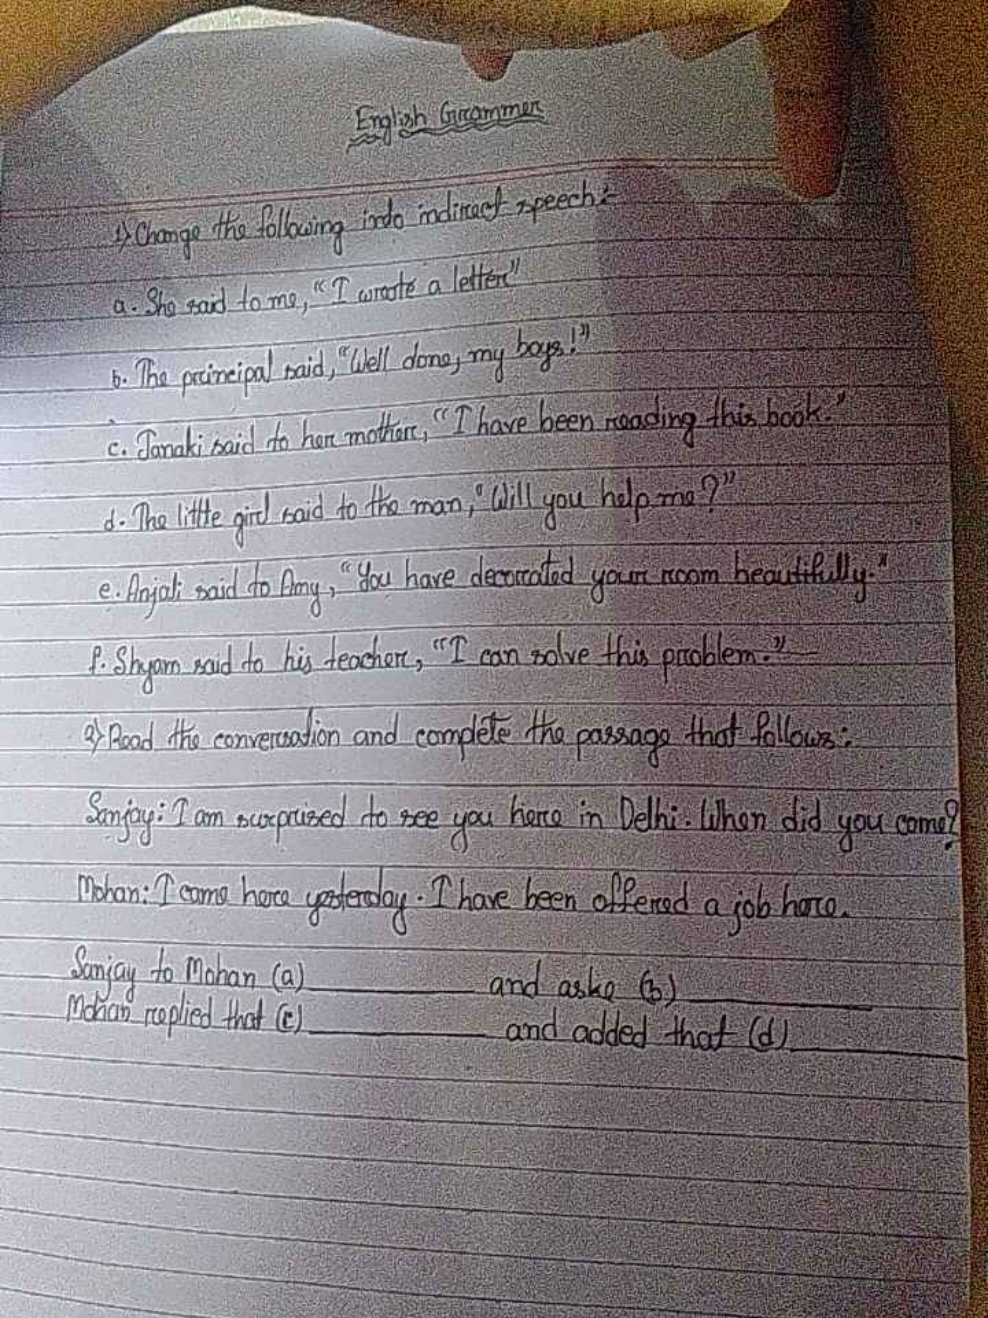 English Grammer
1) Change the following into indirect speech:-
a. She said to me, "I wrote a letter"
b. The principal said, "Well done, my boys!"
c. Janaki said to her mother, "I have been reading this book."
d. The little girl said to the man, "Will you help me?"
e. Anjali said to Amy, "You have decorated your room beautifully."
f. Shyam said to his teacher, "I can solve this problem."
2) Read the conversation and complete the passage that follows:
Sanjay: I am surprised to see you here in Delhi. When did you come?
Mohan: I came here yesterday. I have been offered a job here.
Sanjay to Mohan (a)__________ and aske (b)__________
Mohan replied that (c)__________ and added that (d)__________